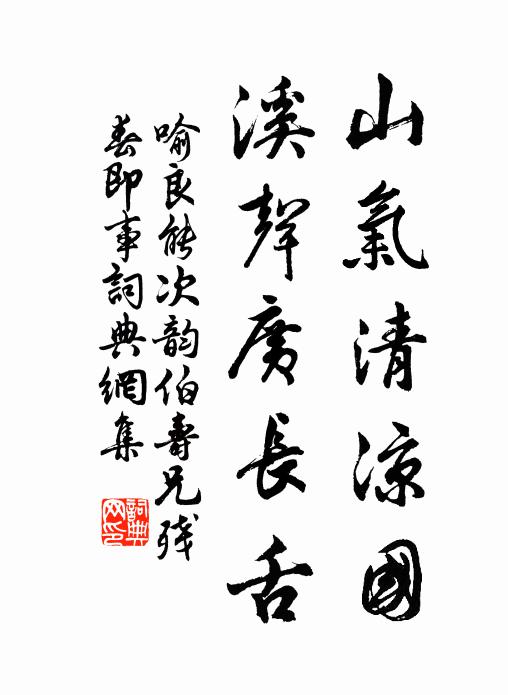 山氣清涼國
溪聲廣長舌
喻良能次韵伯壽兄殘
春即事詞典網集
詞典
网印